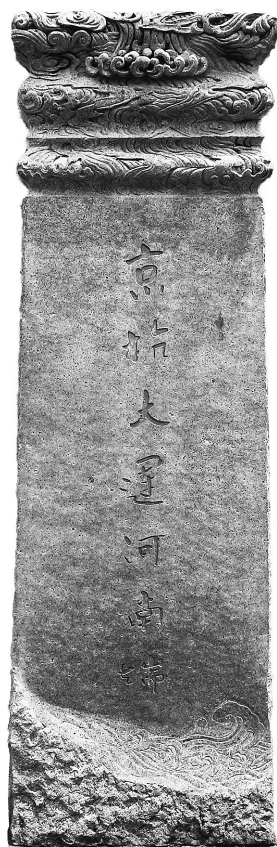 京杭大運河南端